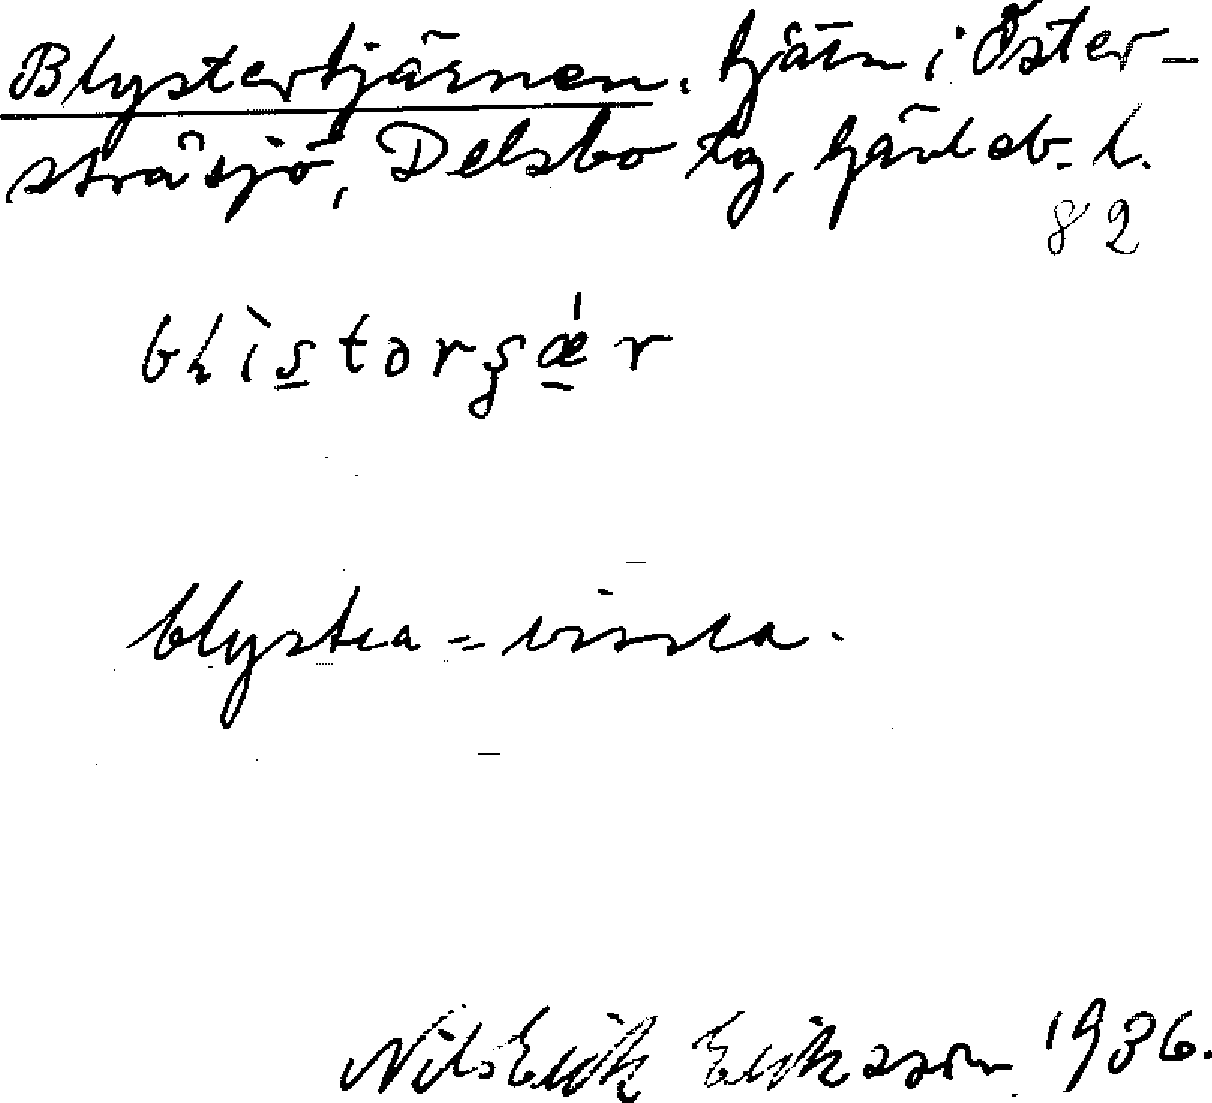 Blystertjärnen. tjärn i Öster-
stråsjö, Delsbo tg, Gävleb. l.
82
blystra = vissla.
Nils Erik Eriksson 1936.